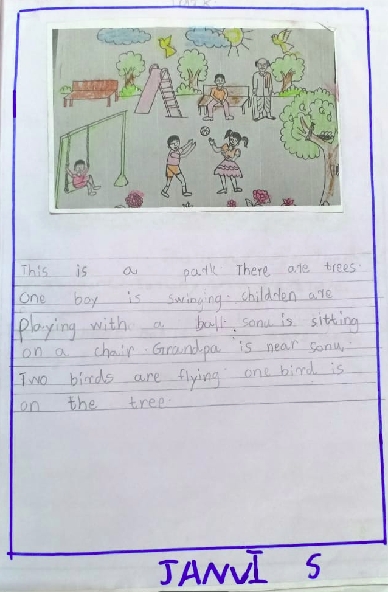 This is a park There are trees.
One boy is swinging. childden are
playing with a ball. sonu is sitting
on a chair. Grandpa is near sonu.
Two birds are flying. one bird is
on the tree.
JANVI S